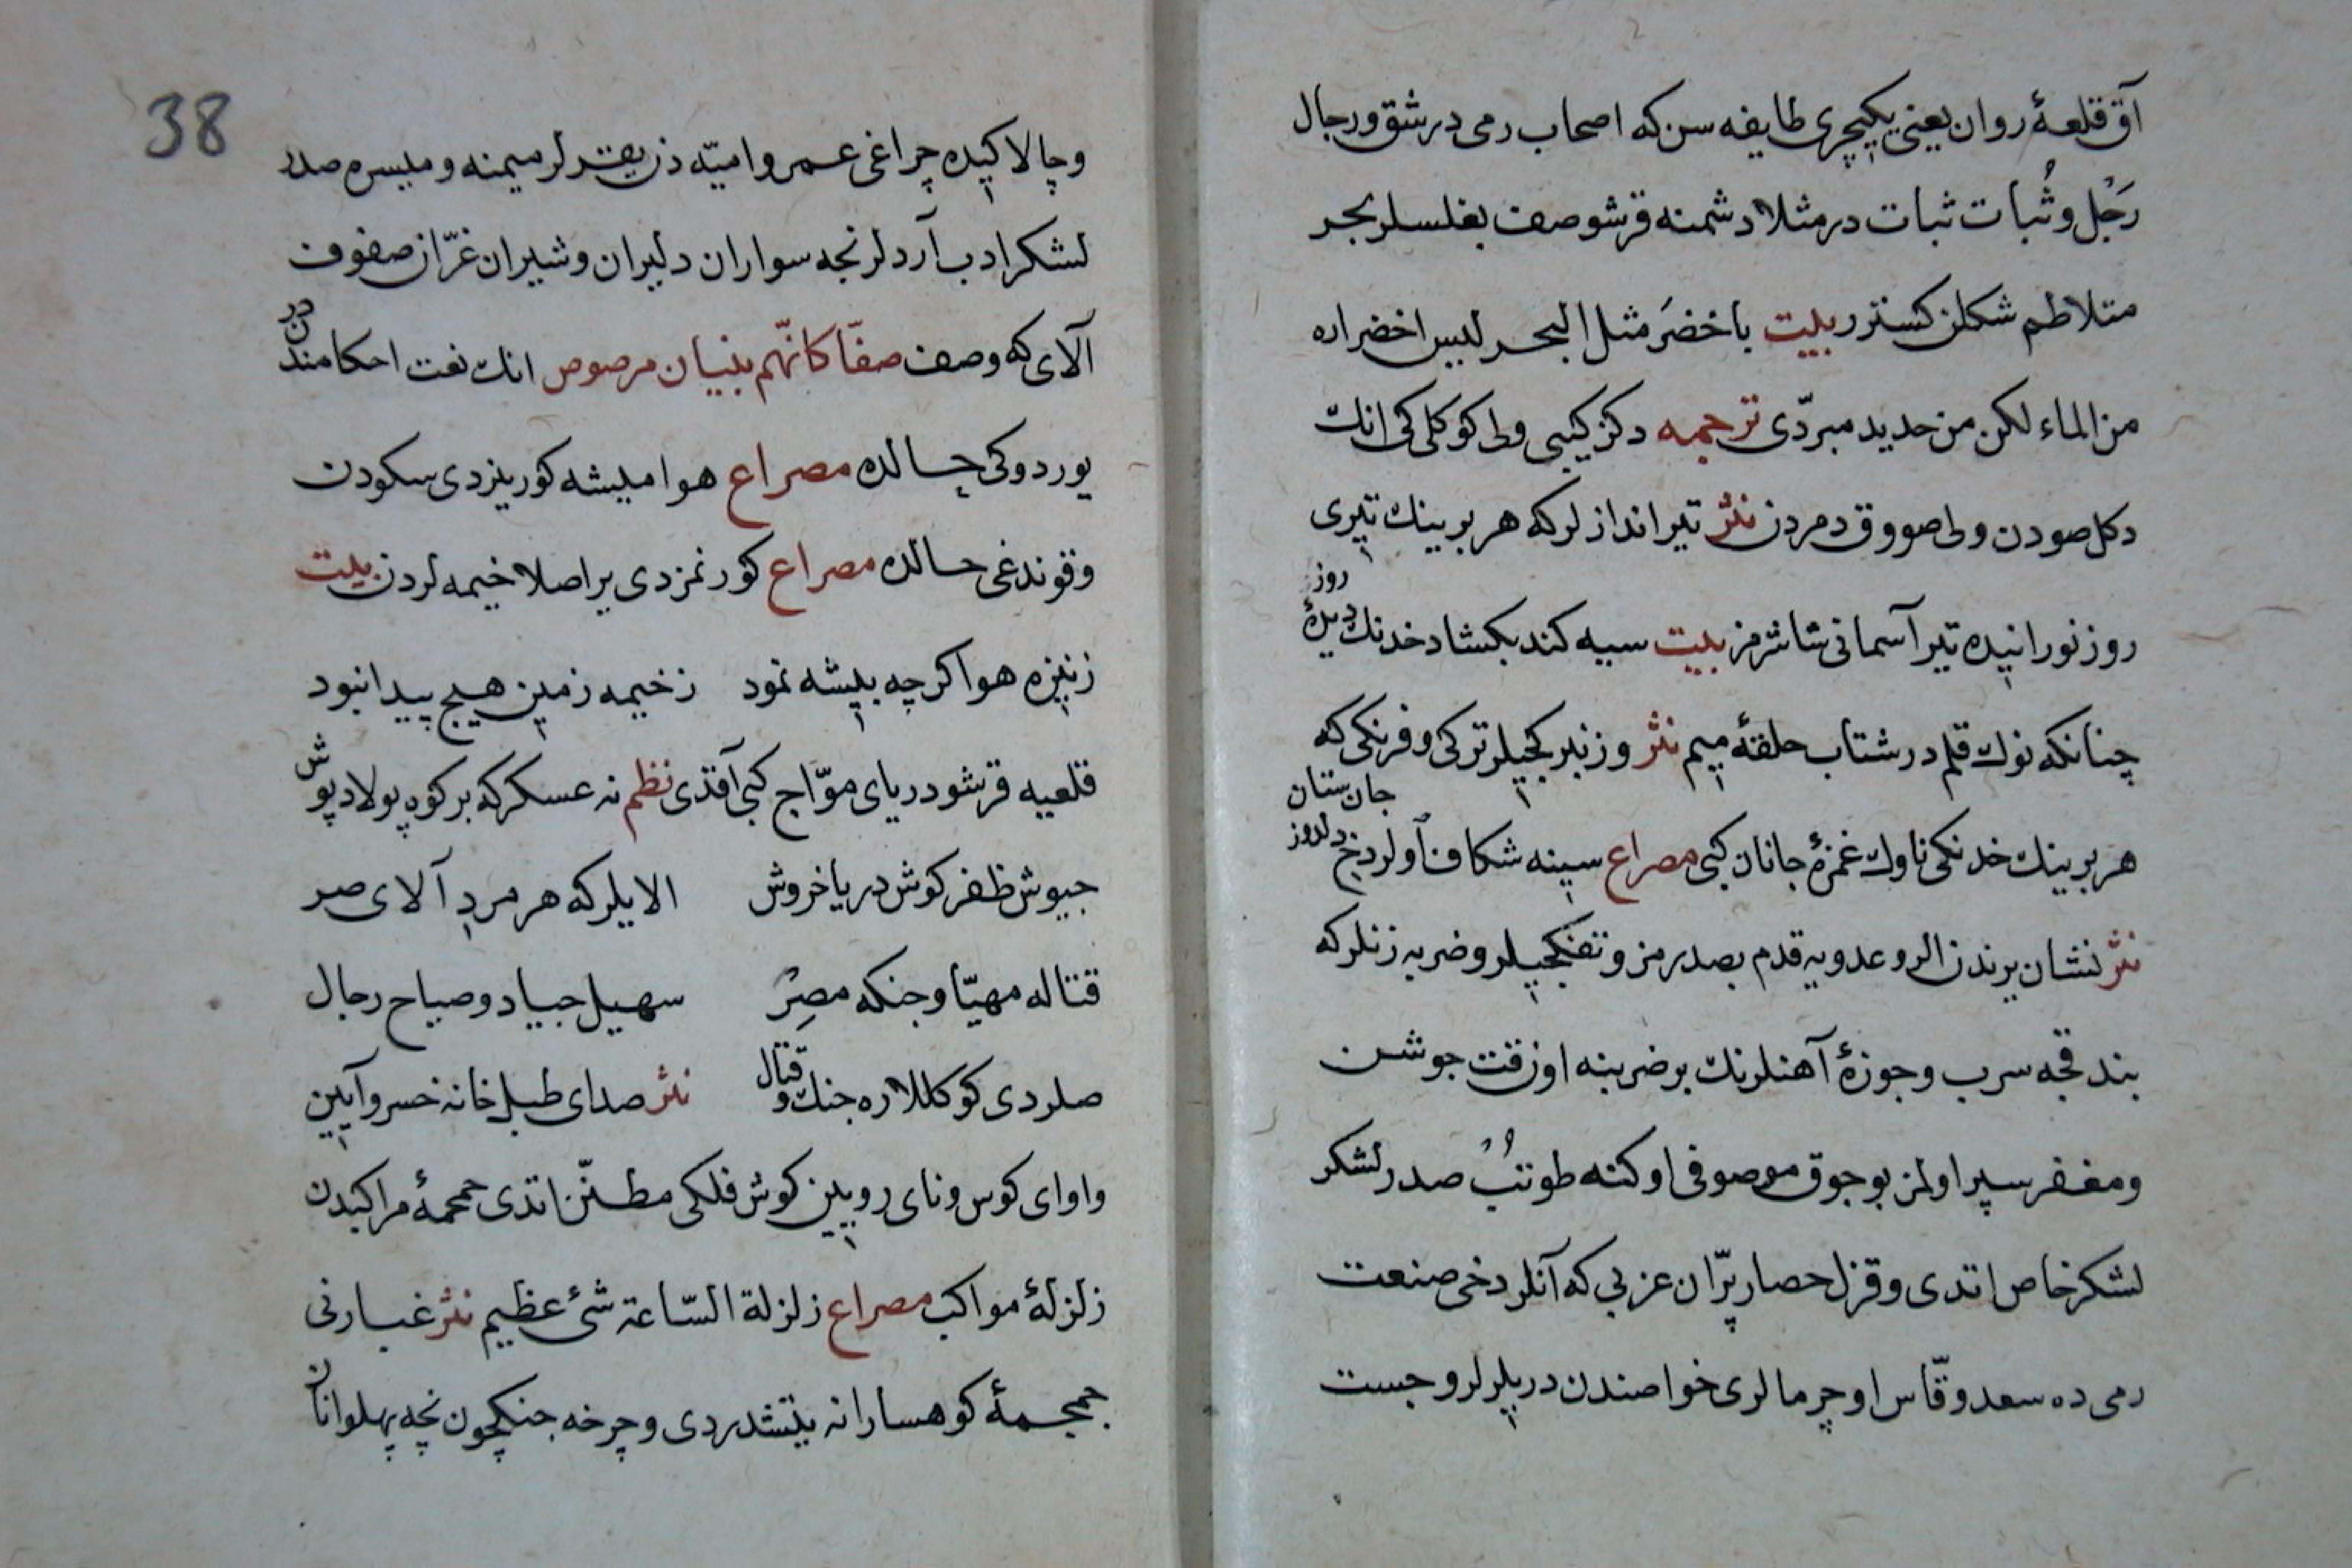 آق قلعهٔ روان یعنی یکیچری طایفه سن که اصحاب رمی درشق ورجال
رَجْل وثُبات ثبات درمثلا دشمنه قرشو صف بغلسلر بحر
متلاطم شکلن کسترر بیت باخضَر مثل البحر لیس اخضراره
من الماء لکن من حدید مبرّدی ترجمه دکز کیبی ولی کوکلکی انك
دکل صودن ولی صووق دمردن نثر تیراندازلر که هر برینك تیری
روز نورانیده تیر آسمانی شاشرمز بیت سیه کند بکشاد خدنك دیدهٔ روز
چنانکه نوك قلم درشتاب حلقهٔ میم نثر وزنبرکجیلر ترکی وفرنکی که
هر برینك خدنکی ناوك غمزهٔ جانان کبی مصراع سینه شکاف اولر دخی دلدوز جان ستان
نثر نشان یرندن الرو عدویه قدم بصدرمز وتفنکجیلر وضربه زنلر که
بندقجه سرب وجوزهٔ آهنلرنك بر ضربنه اوزقت جوشن
ومغفر سپر اولمز بوجوق موصوفی اوکنه طوتب صدر لشکر
لشکر خاص اتدی وقزل حصار پرّان عزبی که آنلر دخی صنعت
رمی ده سعد وقّاس اوچرمالری خواصندن دریلرلر وجست
38
وچالاکیده چراغی عمر وامیّه دن یقدلر میمنه ومیسره صدر
لشکر ادب آردلرنجه سواران دلیران وشیران غرّان صفوف
آلای که وصف صفّا کانّهم بنیان مرصوص انك نعت احکامندندر
یوردوکی حالده مصراع هوا میشه کورینردی سکودن
وقوندغی حالده مصراع کورنمزدی یر اصلا خیمه لردن بیت
زنیزه هوا کرچه بیشه نمود زخیمه زمین هیچ پیدا نبود
قلعیه قرشو دریای موّاج کبی آقدی نظم نه عسکر که بر کوه پولاد پوش
جیوش ظفر کوش دریا خروش الایلر که هر مردِ آلای صر
قتاله مهیّا وجنکه مصِرْ سهیل جیاد وصیاح رجال
صلردی کوکللاره جنك وقتال نثر صدای طبل خانه خسرو آیین
واوای کوس ونای رویین کوش فلکی مطنّن اتدی حمحمهٔ مراکبدن
زلزلهٔ مواکب مصراع زلزلة السّاعة شیٔ عظیم نثر غبارنی
جمجمهٔ کوهسارانه یتشدردی وچرخه جنکچون نچه پهلوانان